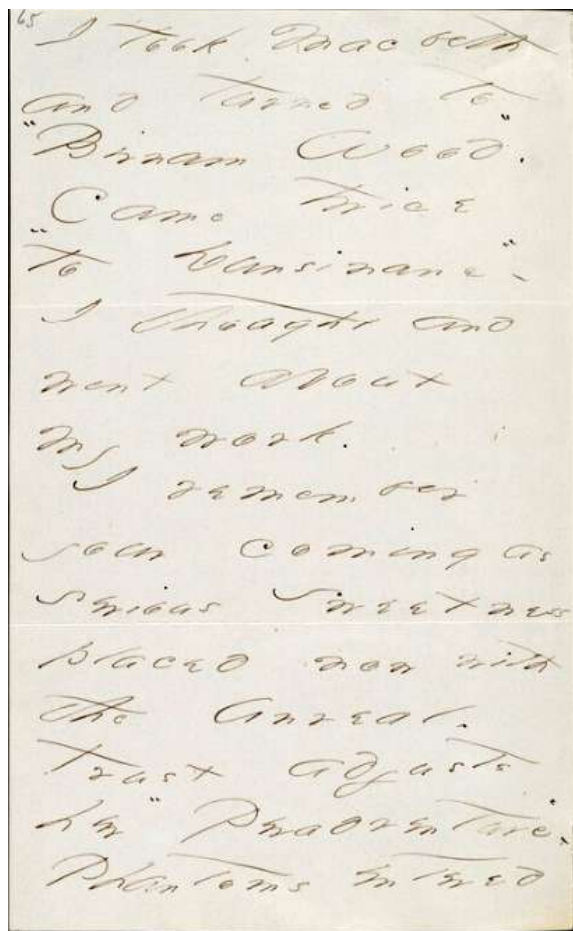 65
I took Macbeth
and turned to
"Birnam Wood."
Came twice
"to Dunsinane" -
I thought and
went about
my work.
I remember
your coming as
serious sweetness
placed now with
the Unreal.
Trust adjusts
her "Peradventure" -
Phantoms entered